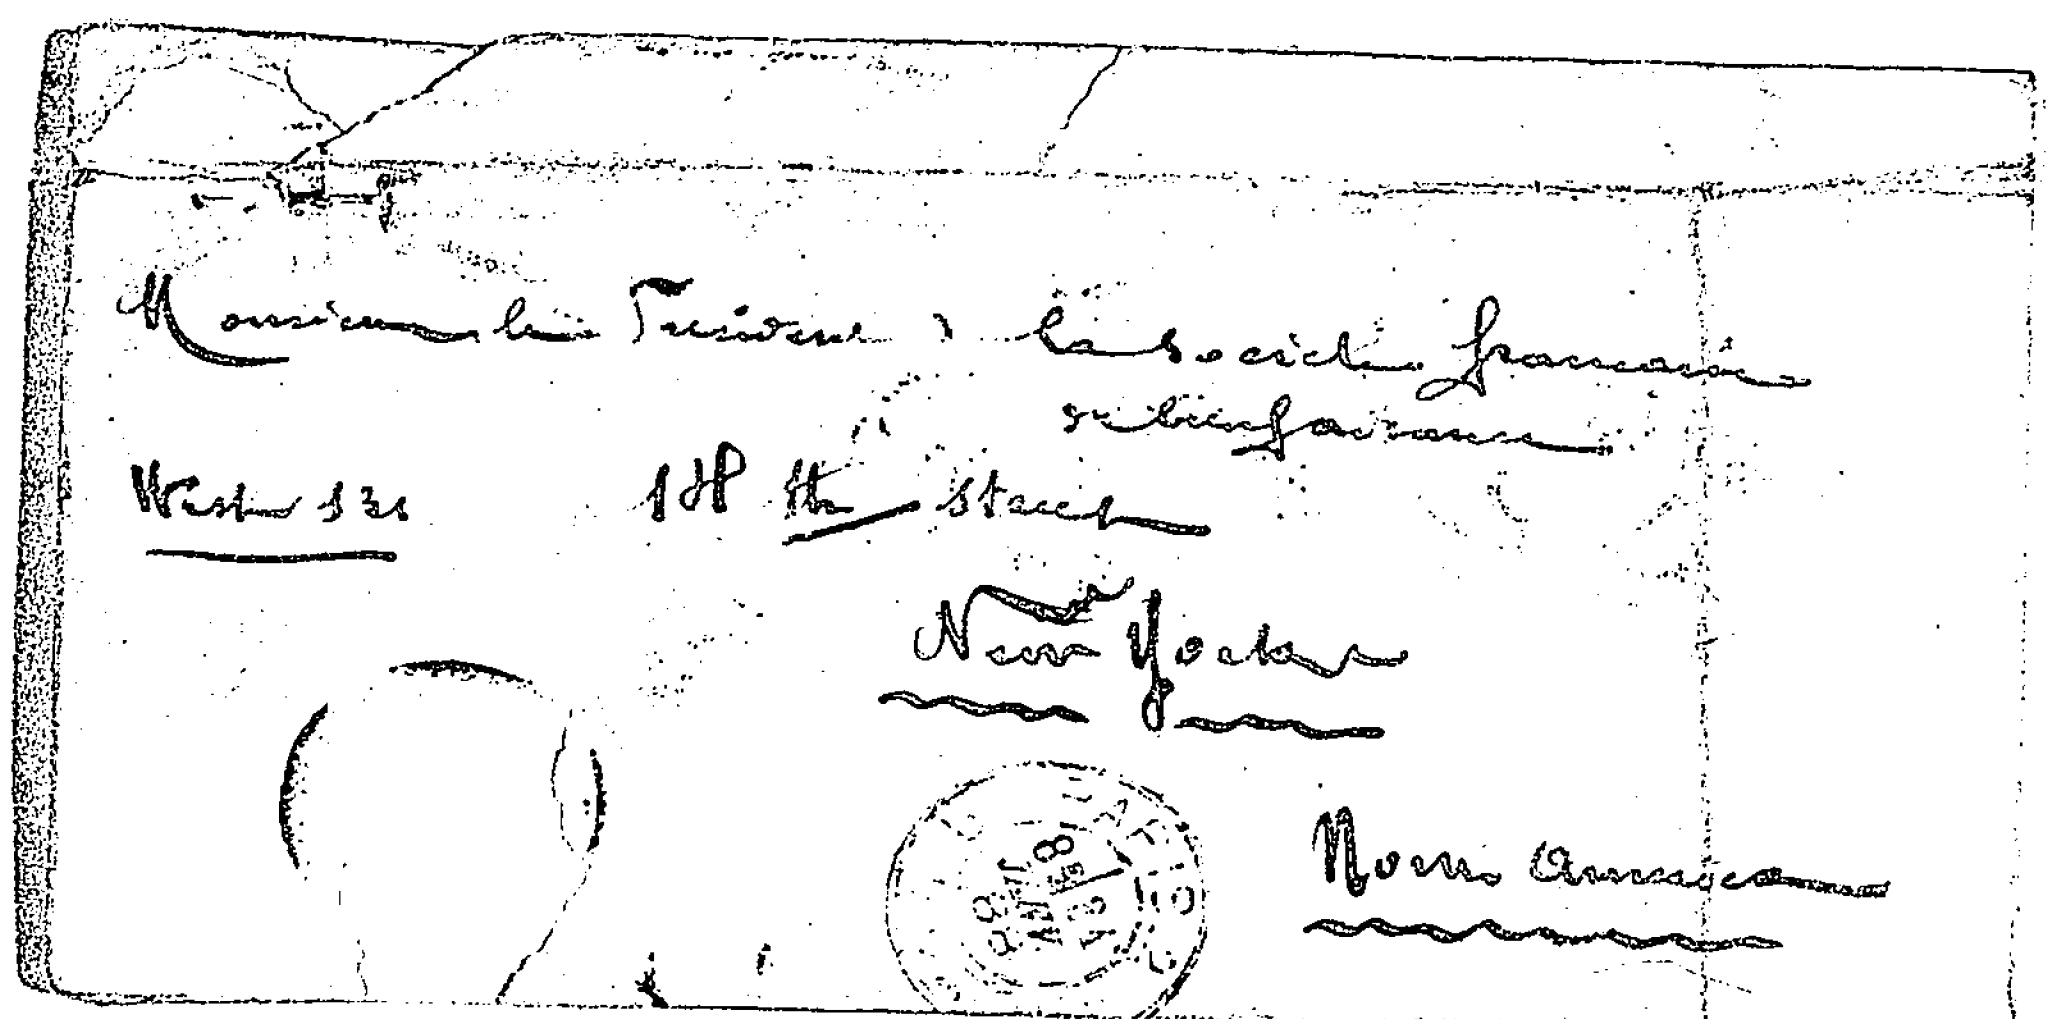 Monsieur le Président de la Société française
de bienfaisance
West 131
th street
New York
North America